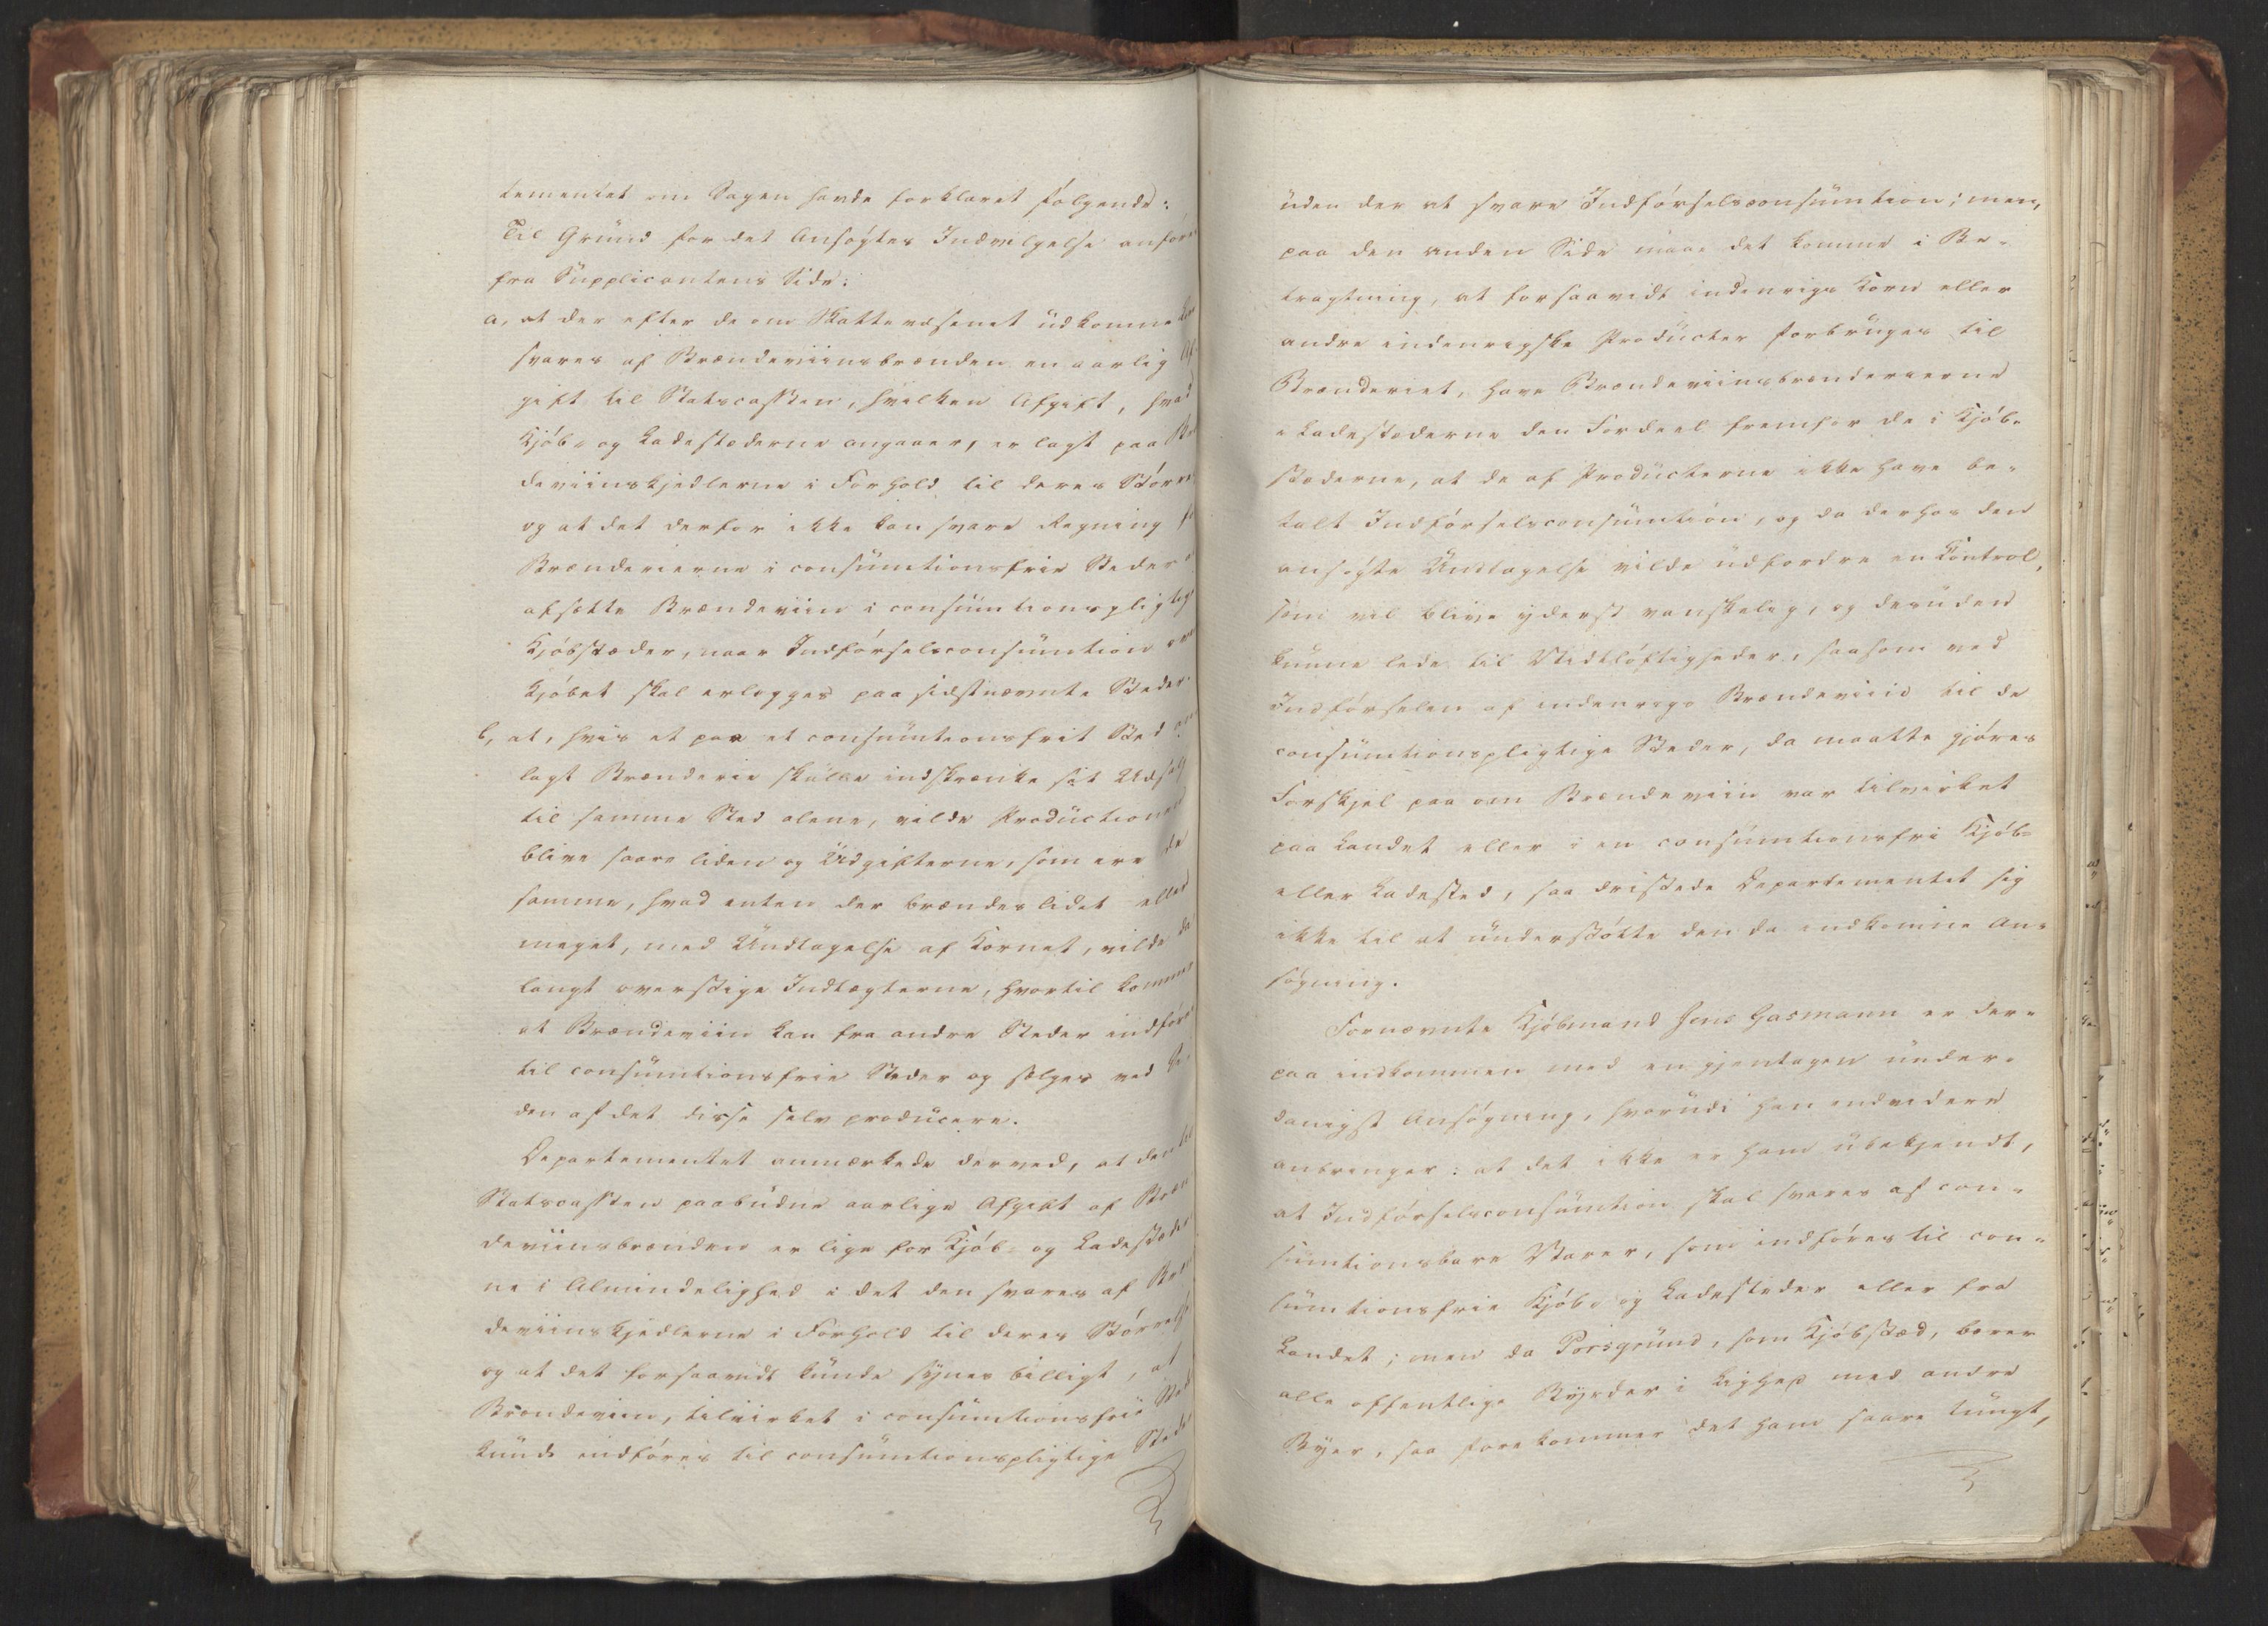 tementet om Sagen havde forklaret følgende:
Til Grund for det Ansøgtes Indvilgelse anføres
fra Supplicantens Side:
a, at der efter de om Skattevæsenet udkomne
svares af Brændeviinsbrænden en aarlig Af-
gift til Statscassen, hvilken Afgift, hvad
Kjøb- og Ladestæderne angaaer, er lagt paa
deviinskjedlerne i Forhold til deres Større
og at det derfor ikke kan svare Regning
Brænderierne i consumtionsfrie Steder
afsætte Brændeviin i consumtionspligtige
Kjøbstæder, naar Indførselsconsumtion
Kjøbet skal erlægges paa sidstnævnte Steder.
b, at, hvis et paa et consumtionsfrit Sted an
lagt Brænderie skulle indskrænke sit Udsalg
til samme Sted alene, vilde Productionen
blive saare liden og Udgifterne, som ere de
samme, hvad enten der brændes lidet eller
meget, med Undtagelse af Kornet, vilde da
langt overstige Indtægterne, hvortil kommer
at Brændeviin kan fra andre Steder indføres
til consumtionsfrie Steder og sælges ved
den af det disse selv producere.
Departementet anmærkede derved, at den til
Statscassen paabudne aarlige Afgift af Bræn
deviinsbrænden er lige for Kjøb- og Ladestæder
ne i Almindelighed i det den svares af Bræn
deviinskjedlerne i Forhold til deres Størrelse
og at det forsaavidt kunde synes billigt, at
Brændeviin, tilvirket i consumtionsfrie Sted
kunde indføres til consumtionspligtige Sted
uden der at svare Indførselsconsumtion; men,
paa den anden Side maae det komme i Be-
tragtning, at forsaavidt indenrigs Korn eller
andre indenrigske Producter forbruges til
Brænderiet, have Brændeviinsbrænderierne
i Ladestæderne den Fordeel fremfor de i Kjøb-
stæderne, at de af Producterne ikke have be-
talt Indførselsconsumtion, og da derhos den
ansøgte Undtagelse vilde udfordre en Control,
som vil blive yderst vanskelig, og desuden
kunne lede til Vidtløftigheder, saasom ved
Indførselen af indenrigs Brændeviin til de
consumtionspligtige Steder, da maatte gjøres
Forskjel paa om Brændeviin var tilvirket
paa Landet eller i en consumtionsfri Kjøb-
eller Ladested, saa dristede Departementet sig
ikke til at understøtte den da indkomne An-
søgning.
Fornævnte Kjøbmand Jens Gasmann er der-
paa indkommen med en gjentagen under-
danigst Ansøgning, hvorudi han endvidere
anbringer: at det ikke er ham ubekjendt,
at Indførselsconsumtion skal svares af con-
sumtionsbare Varer, som indføres til con-
sumtionsfrie Kjøb- og Ladesteder eller fra
Landet; men da Porsgrund, som Kjøbstæd, bærer
alle offentlige Byrder i Lighed med andre
Byer, saa forekommer det ham saare tungt,